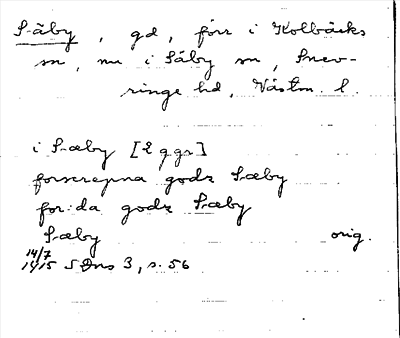 Säby, gd, förr i Kolbäcks
sn, nu i Säby sn, Snev-
ringe hd, Västm. l.
i Sæby [2 ggr]
forscrepna godz Sæby
for:da godz Sæby
Sæby orig.
14/7
1415 SDns 3, s. 56